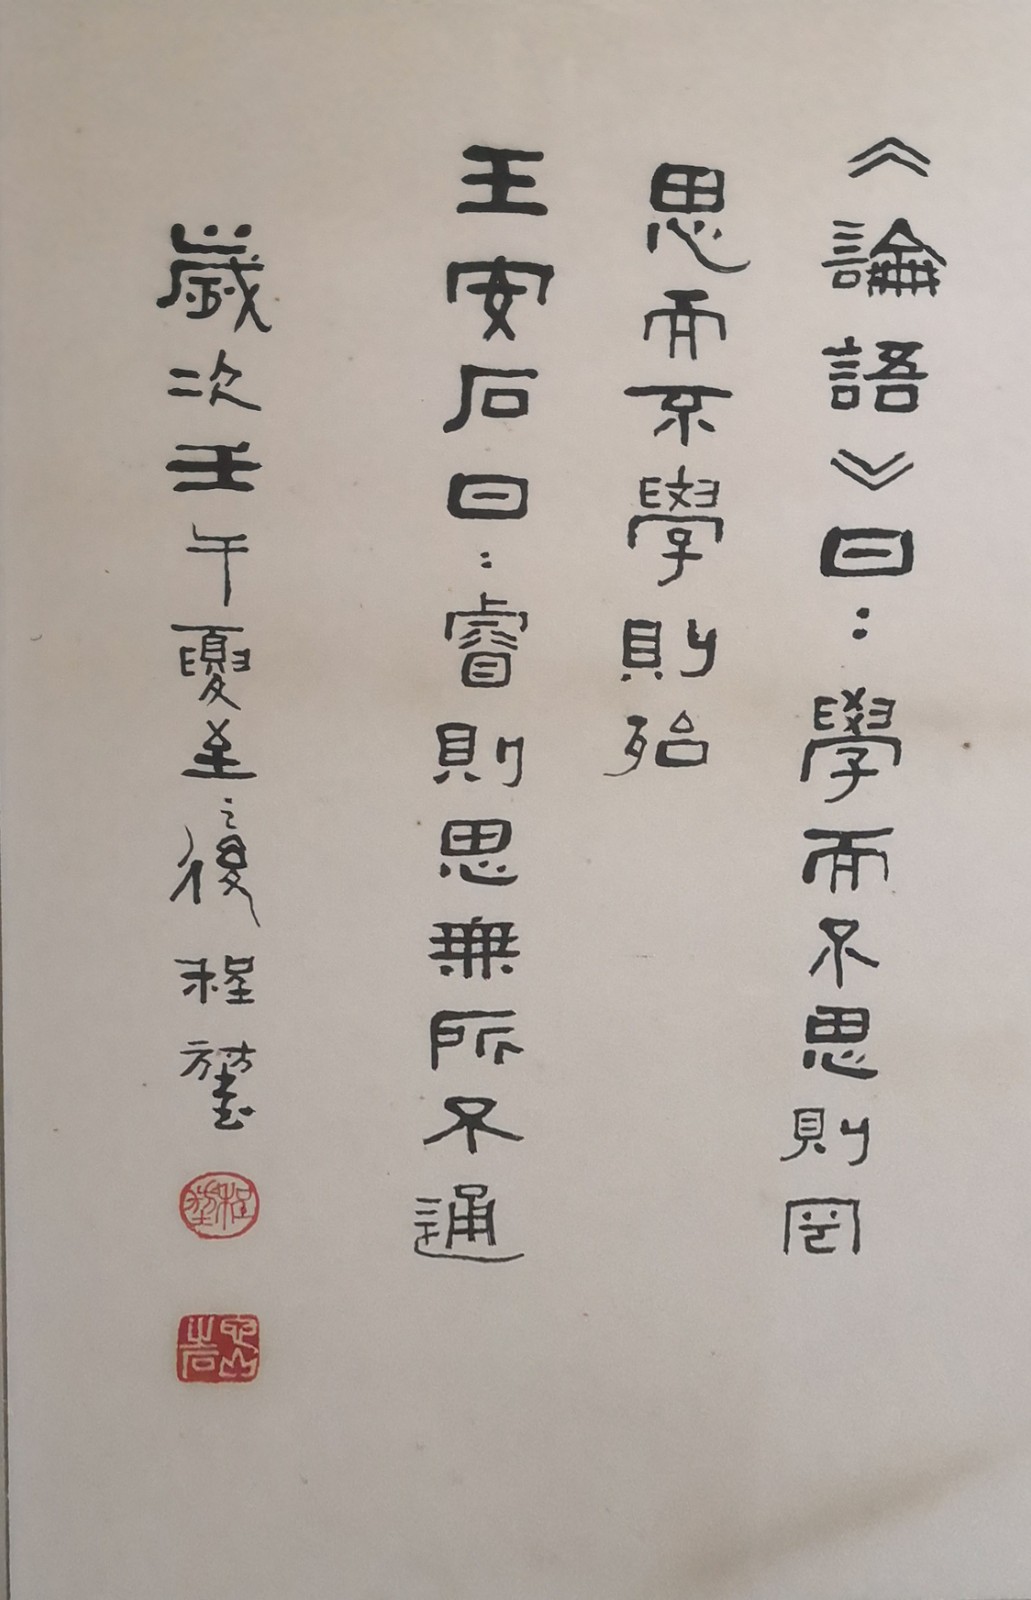 《論語》曰：學而不思則罔
思而不學則殆
王安石曰：睿則思無所不通
歲次壬午夏至之後 程